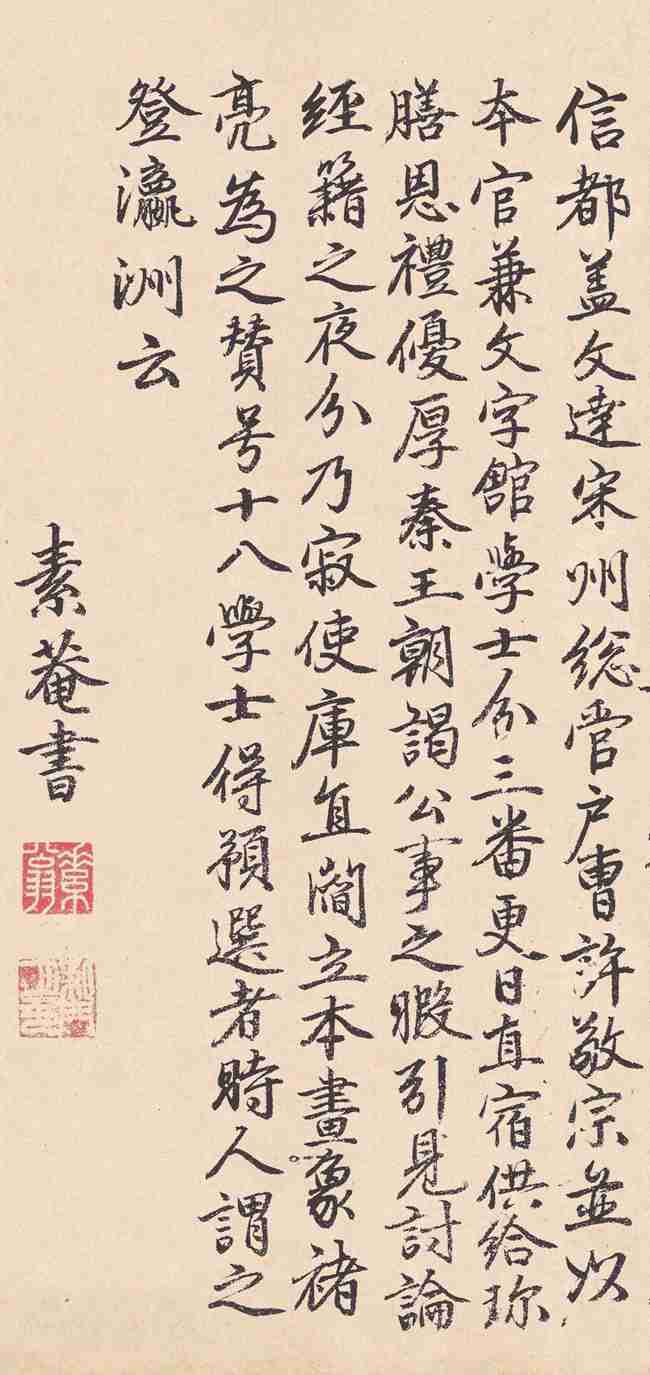 信都盖文達宋州総管户曹許敬宗並以
本官兼文字館學士分三番更日直宿供給珎
膳恩禮優厚秦王朝謁公事之暇引見討論
經籍之夜分乃寂使庫直閻立本畫象禇
亮為之賛号十八學士得預選者時人謂之
登瀛洲云
素菴書